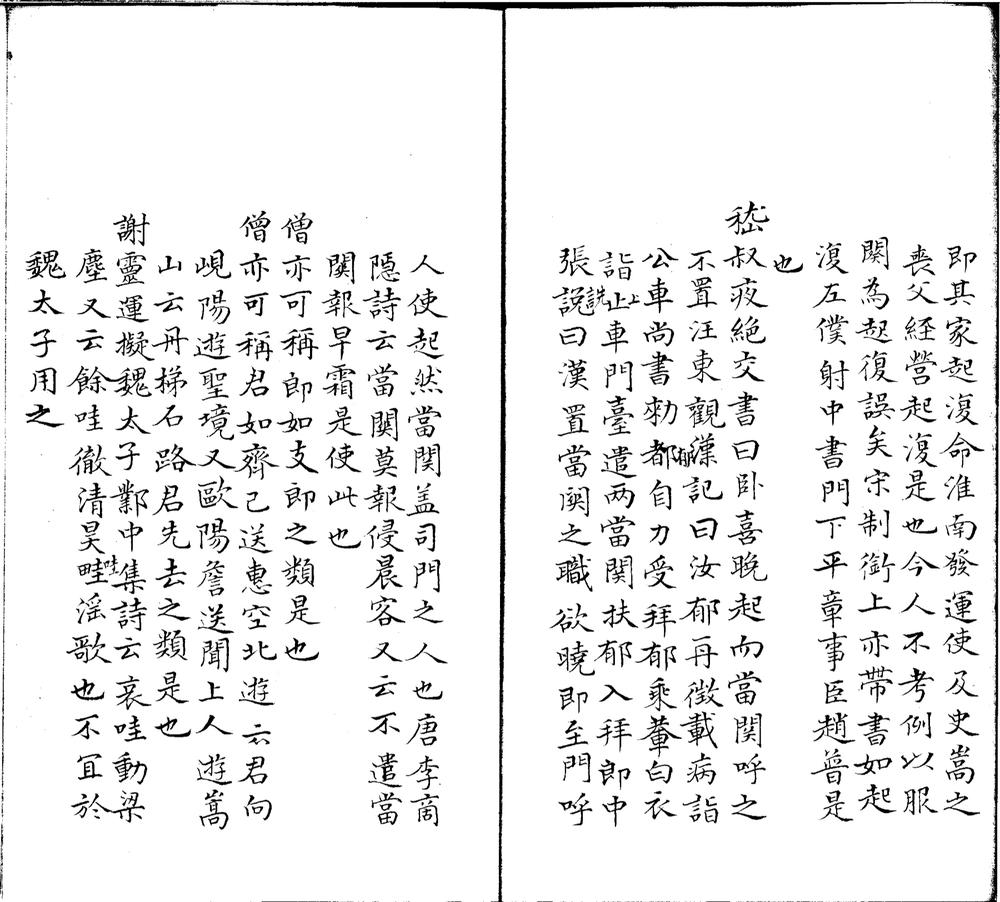 即其家起復命淮南發運使及史嵩之
喪父経營起復是也今人不考例以服
闋為起復誤矣宋制銜上亦帶書如起
復左僕射中書門下平章事臣趙普是
也
嵇叔夜絶交書曰卧喜晚起而當関呼之
不置汪東觀漢記曰汝郁再徵載病詣
公車尚書勑都郁自力受拜郁乘輦白衣
詣止上車門臺遣两當関扶郁入拜郎中
張説詵曰漢置當関之職欲曉即至門呼
人使起然當関盖司門之人也唐李商
隱詩云當関莫報侵晨客又云不遣當
関報早霜是使此也
僧亦可稱郎如支郎之類是也
僧亦可稱君如齊己送惠空北遊云君向
峴陽遊聖境又歐陽詹送聞上人遊嵩
山云丹梯石路君先去之類是也
謝靈運擬魏太子鄴中集詩云哀哇動梁
塵又云餘哇徹清昊畦哇淫歌也不宜於
魏太子用之